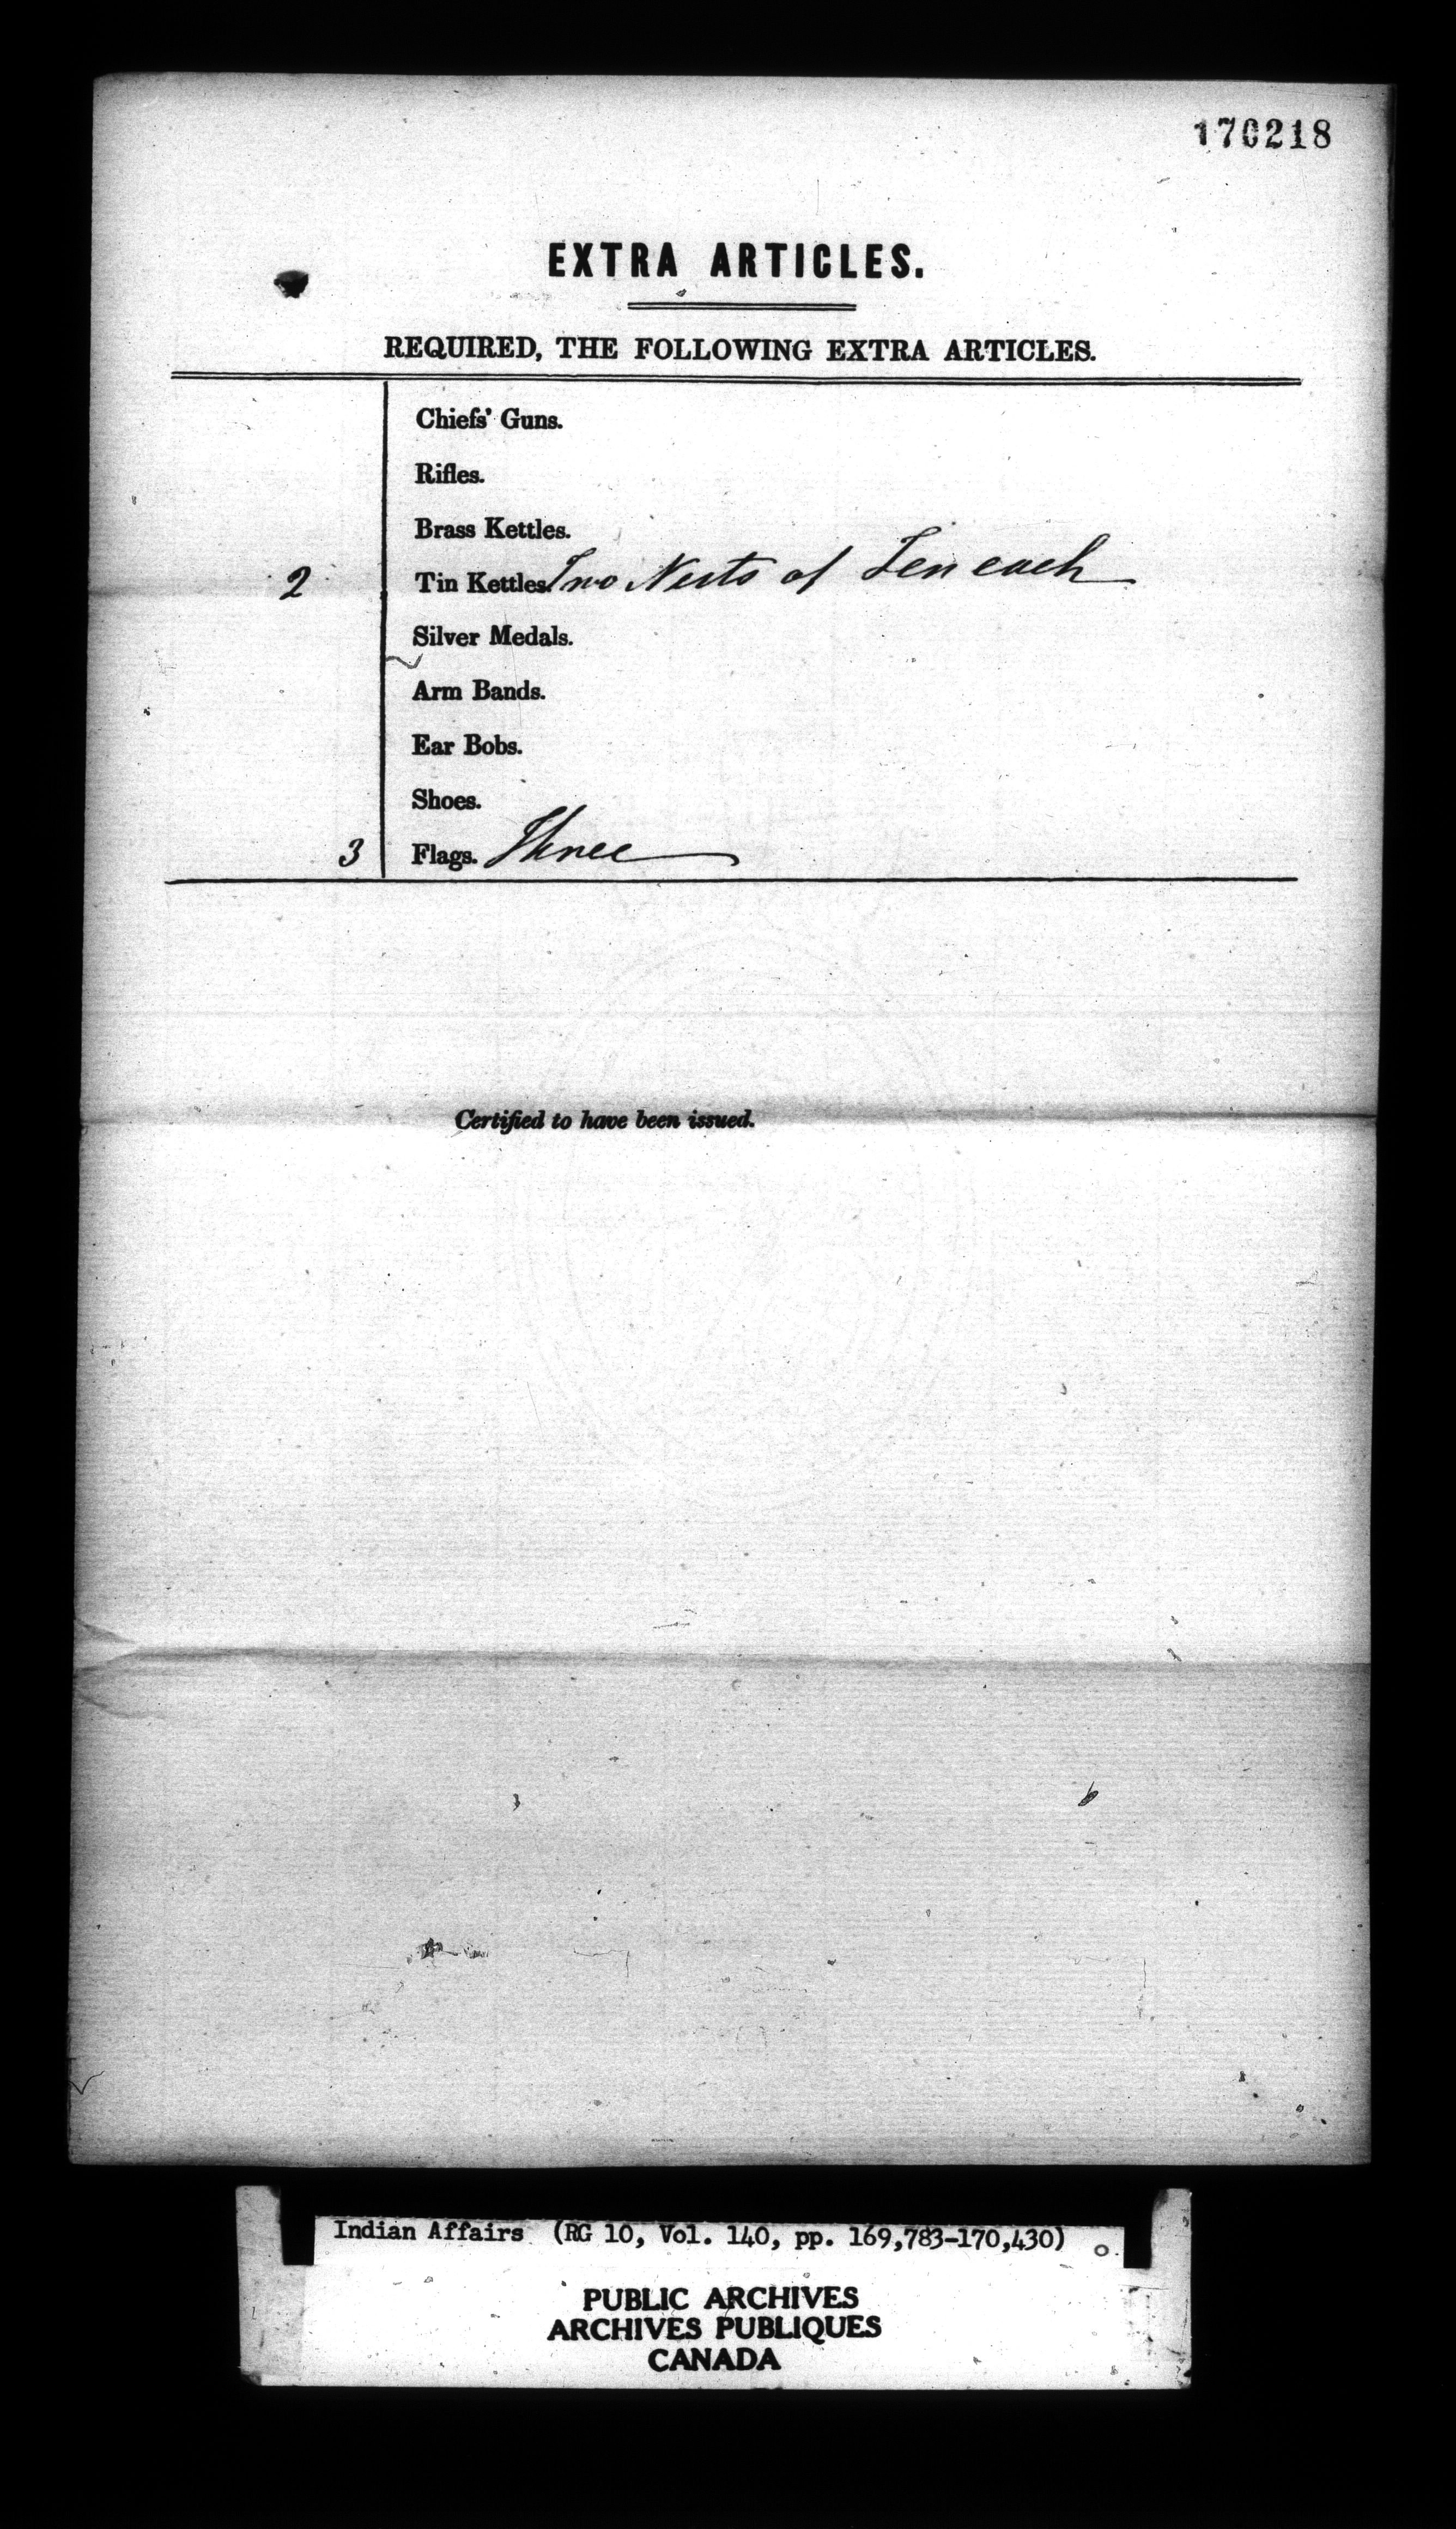 170218
EXTRA ARTICLES.
REQUIRED, THE FOLLOWING EXTRA ARTICLES.
Chiefs' Guns.
Rifles.
Brass Kettles.
2 Tin Kettles. Two Nests of Ten each
Silver Medals.
Arm Bands.
Ear Bobs.
Shoes.
3 Flags. Three
Certified to have been issued.
Indian Affairs (RG 10, Vol. 140, pp. 169,783-170,430)
PUBLIC ARCHIVES
ARCHIVES PUBLIQUES
CANADA